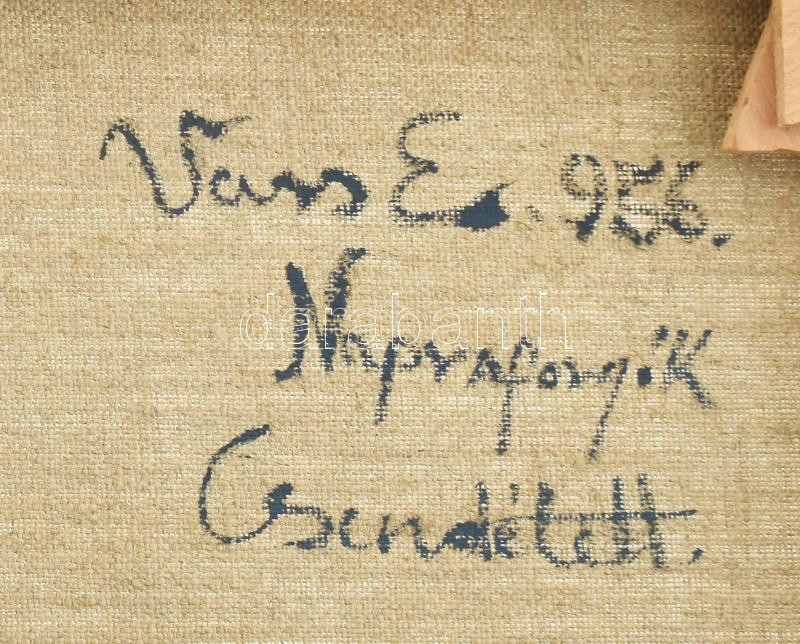 Vass E. 956.
Napraforgók
darabanth
Csendélett.